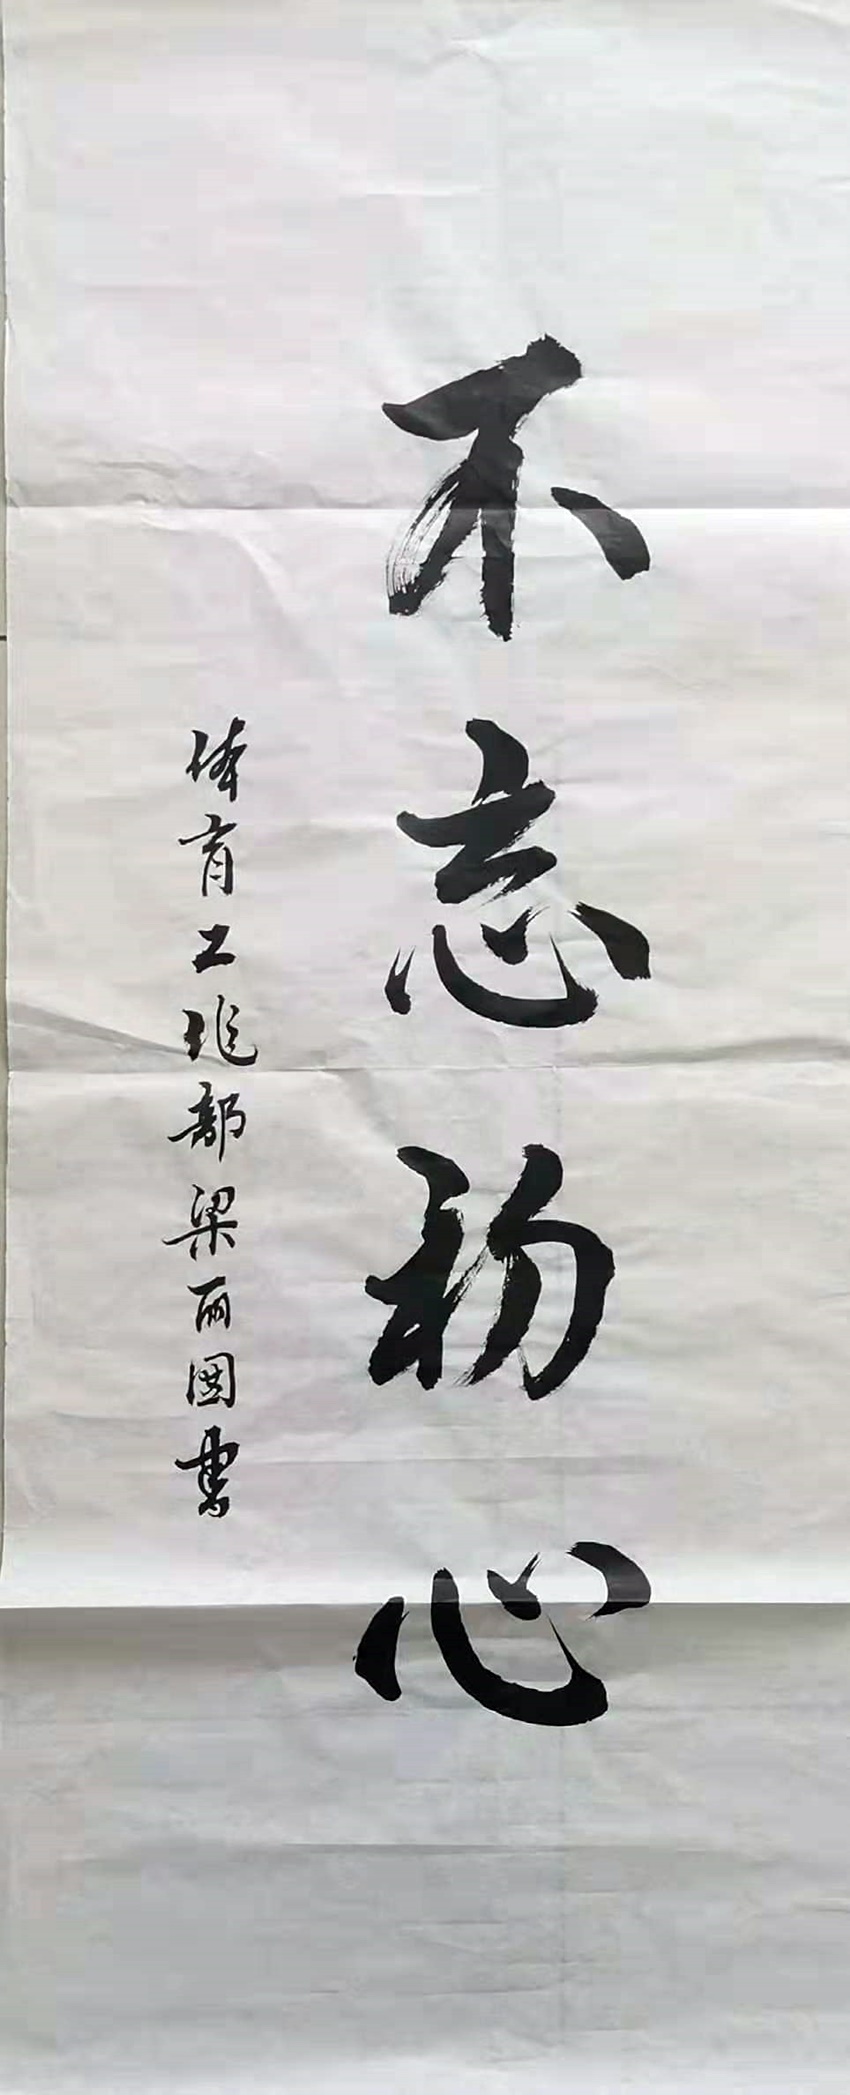 不忘初心
体育工作部梁丽国书